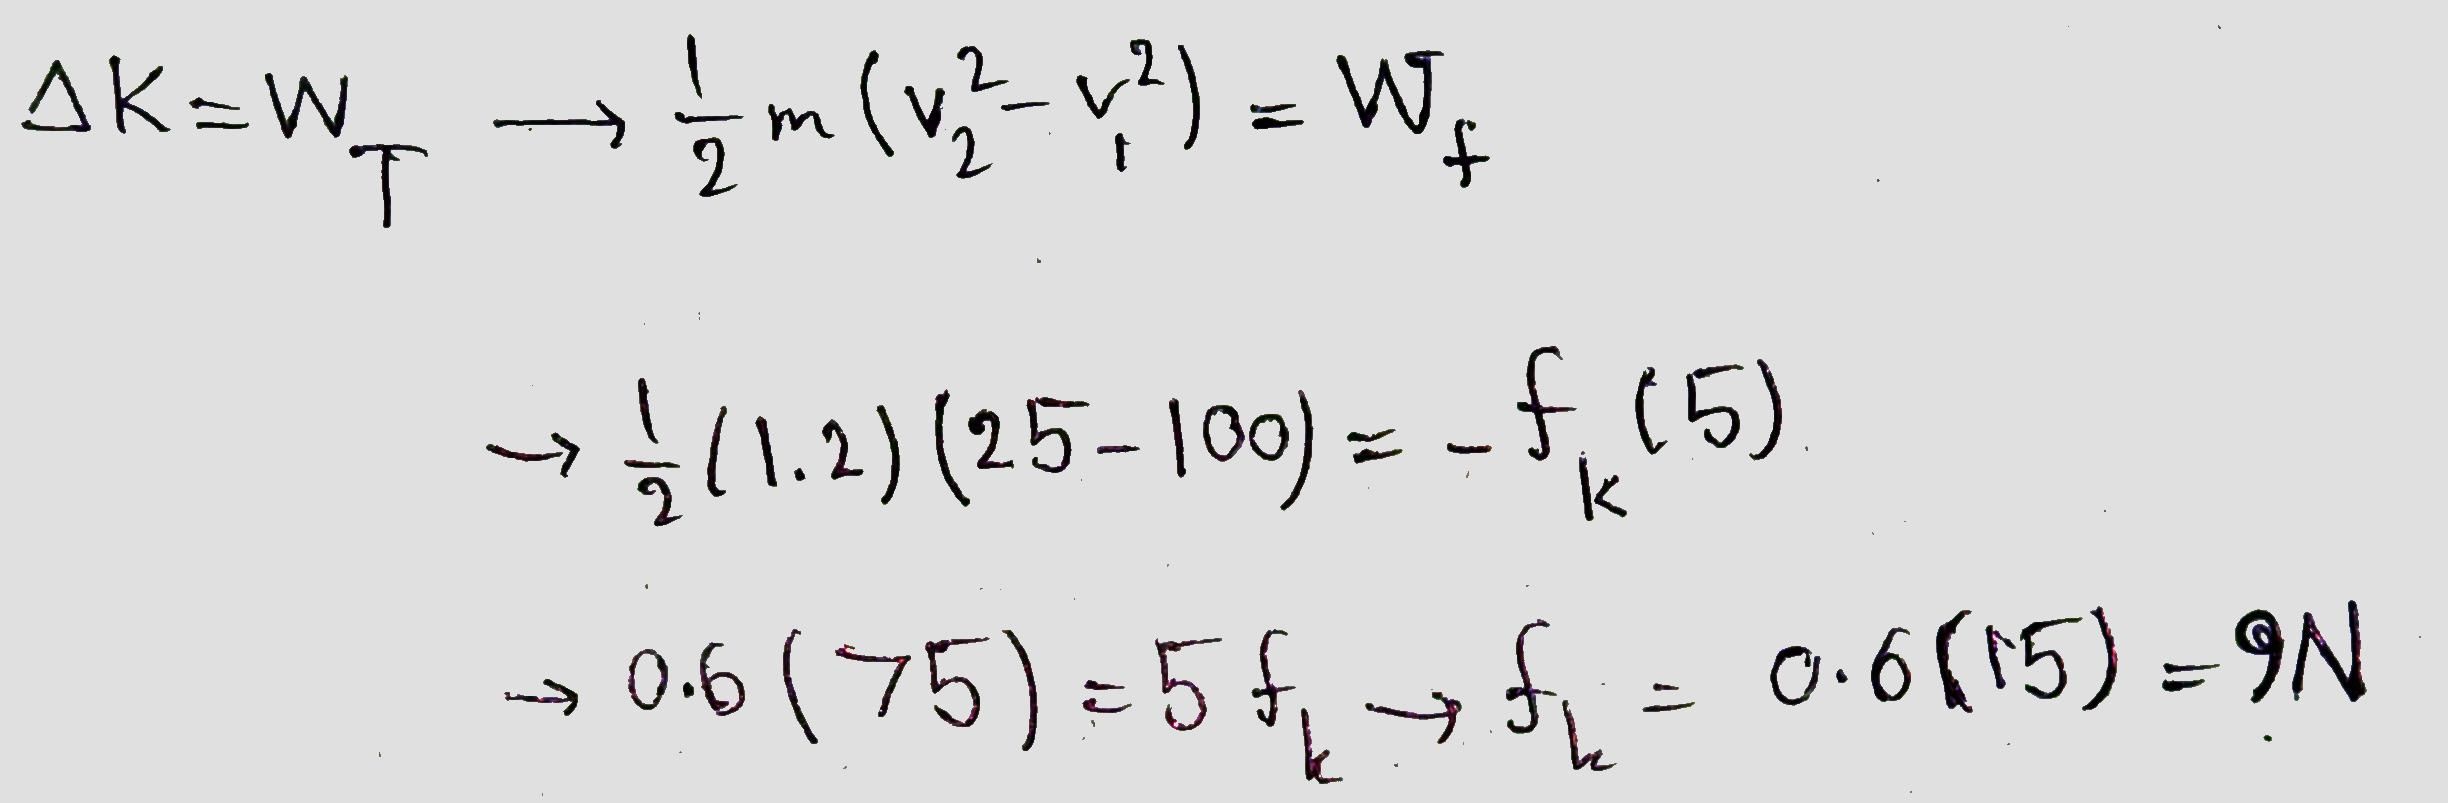 ΔK = W_T ⟶ 1/2 m (v₂² − v₁²) = W_f
→ 1/2 (1.2) (25 − 100) = − f_k (5)
→ 0.6 (75) = 5 f_k → f_k = 0.6 (15) = 9N